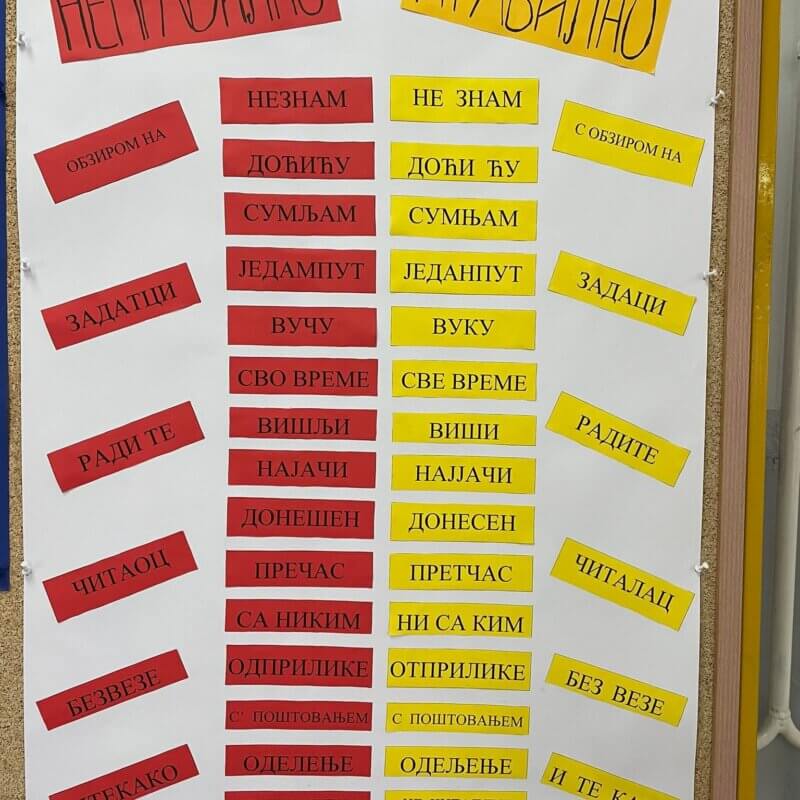 НЕПРАВИЛНО ПРАВИЛНО
НЕЗНАМ НЕ ЗНАМ
ОБЗИРОМ НА С ОБЗИРОМ НА
ДОЋИЋУ ДОЋИ ЋУ
СУМЉАМ СУМЊАМ
ЈЕДАМПУТ ЈЕДАНПУТ
ЗАДАТЦИ ЗАДАЦИ
ВУЧУ ВУКУ
СВО ВРЕМЕ СВЕ ВРЕМЕ
ВИШЉИ ВИШИ
РАДИ ТЕ РАДИТЕ
НАЈАЧИ НАЈЈАЧИ
ДОНЕШЕН ДОНЕСЕН
ЧИТАОЦ ЧИТАЛАЦ
ПРЕЧАС ПРЕТЧАС
СА НИКИМ НИ СА КИМ
ОДПРИЛИКЕ ОТПРИЛИКЕ
БЕЗВЕЗЕ БЕЗ ВЕЗЕ
С' ПОШТОВАЊЕМ С ПОШТОВАЊЕМ
ОДЕЛЕЊЕ ОДЕЉЕЊЕ
ИТЕКАКО И ТЕ